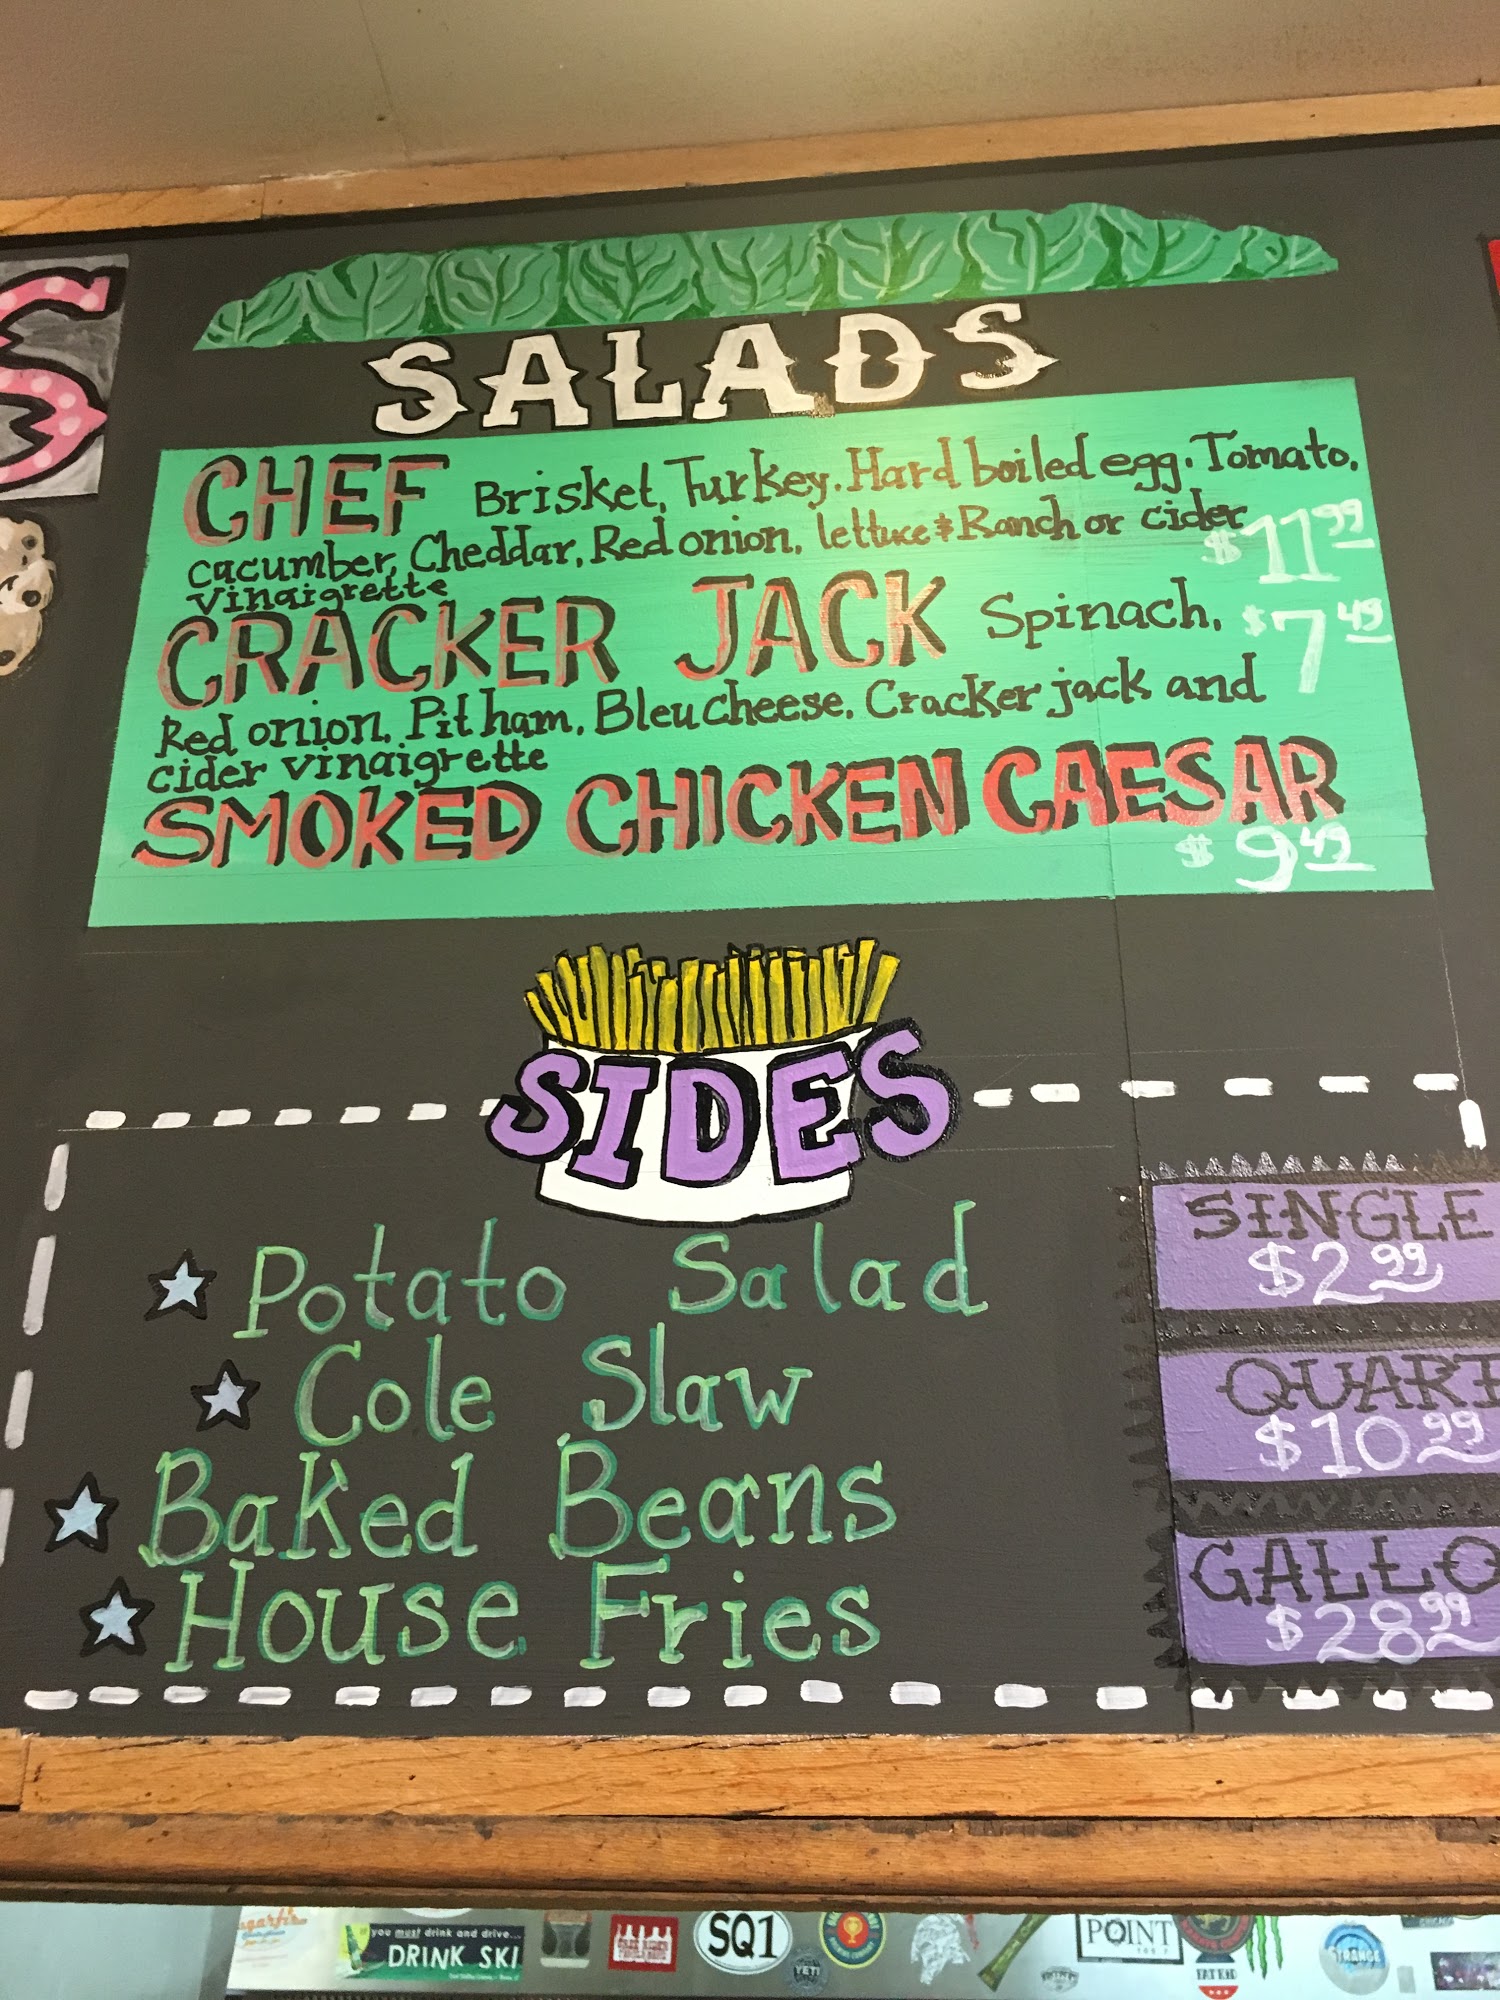 SALADS
CHEF Brisket, Turkey. Hard boiled egg. Tomato,
cacumber, Cheddar, Red onion, lettuce & Ranch or cider
vinaigrette
$11.99
CRACKER JACK Spinach,
$7.49
Red onion, Pit ham, Bleu cheese, Cracker jack and
cider vinaigrette
SMOKED CHICKEN CAESAR
$9.49
SIDES
Potato Salad
Cole Slaw
Baked Beans
House Fries
SINGLE
$2.99
QUART
$10.99
GALLO
$28.99
you must drink and drive...
DRINK SKI
SQ1
YETI
POINT
FAT KID
STRANGE